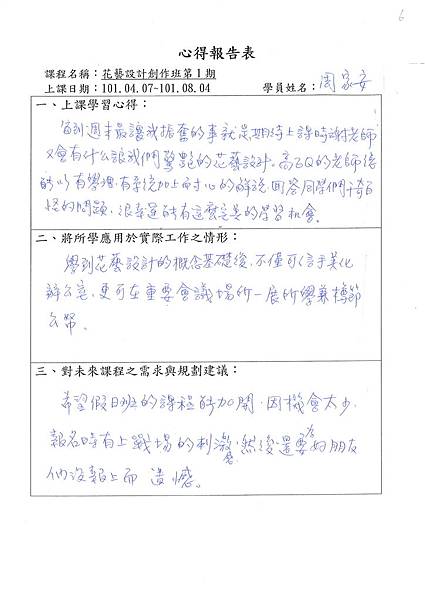 6
心得報告表
課程名稱：花藝設計創作班第1期
上課日期：101.04.07~101.08.04 學員姓名：周家安
一、上課學習心得：
每到週末最讓我振奮的事就是期待上課時謝老師
又會有什么讓我們驚艷的花藝設計。高EQ的老師總
能以有學理有系統加上耐心的解說回答同學們千奇百
怪的問題，很幸運能有這麼完美的學習機會。
二、將所學應用於實際工作之情形：
學到花藝設計的概念基礎後，不僅可以言于美化
辦公室，更可在重要會議場所一展所學兼樽節
公帑。
三、對未來課程之需求與規劃建議：
希望假日班的課程能加開，因機會太少，
報名時有上戰場的刺激感，然後還要為好朋友
們沒報上而遺憾。